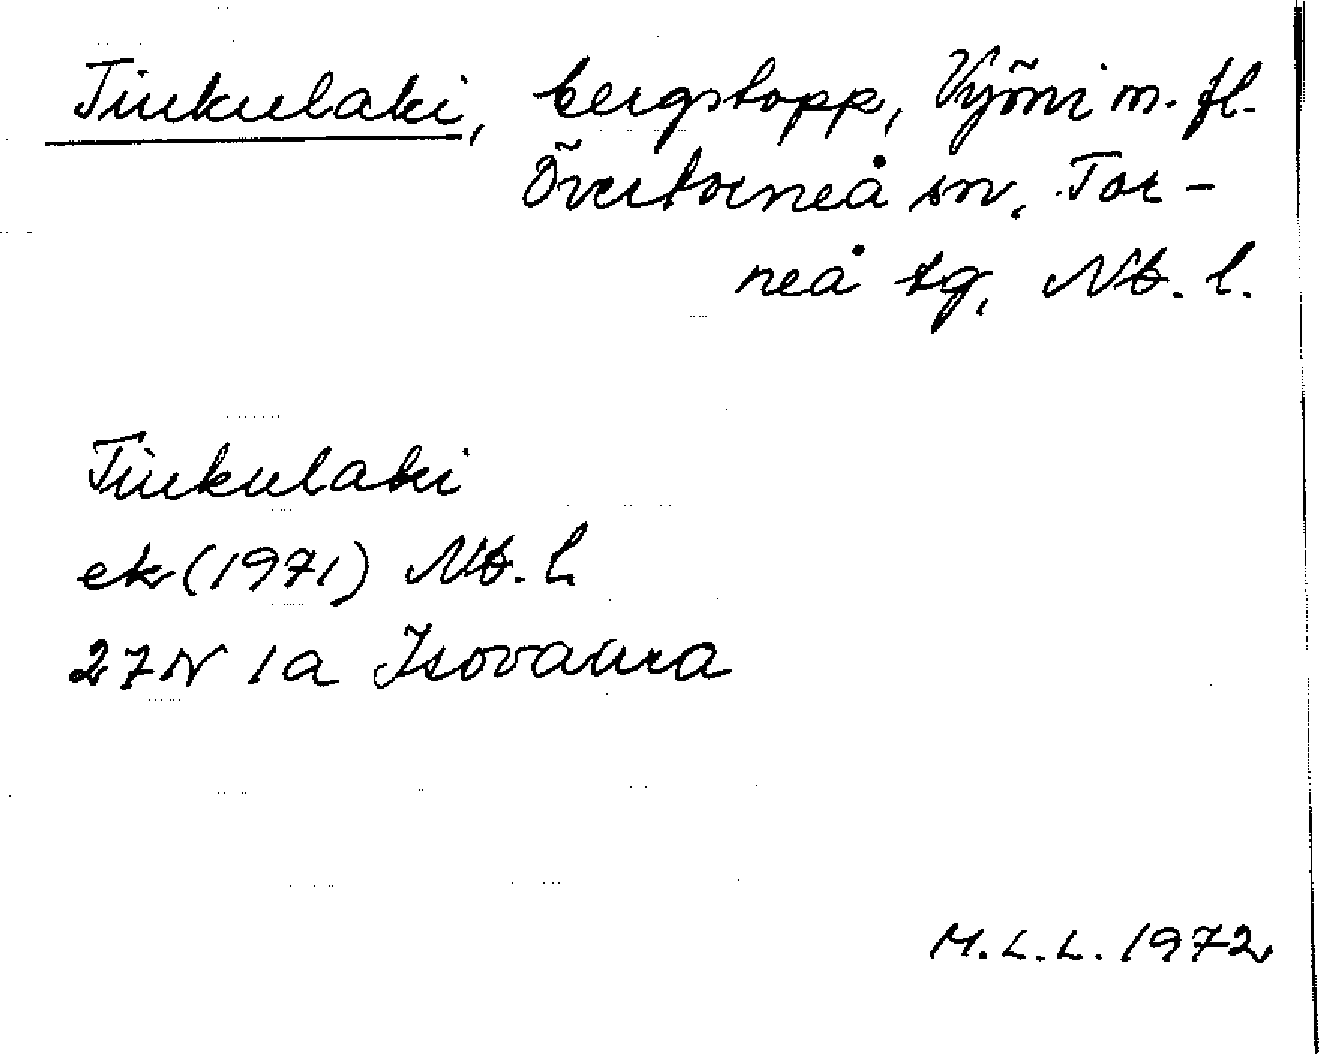 Tiukulaki, bergstopp, Vyöni m. fl.
Övertorneå sn, Tor-
neå tg, Nb. l.
Tiukulaki
ek (1971) Nb. l.
27N 1a Isovaara
M.L.L. 1972